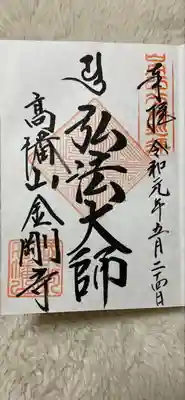 奉拝 令和元年五月二十四日
弘法大師
高橋山金剛寺